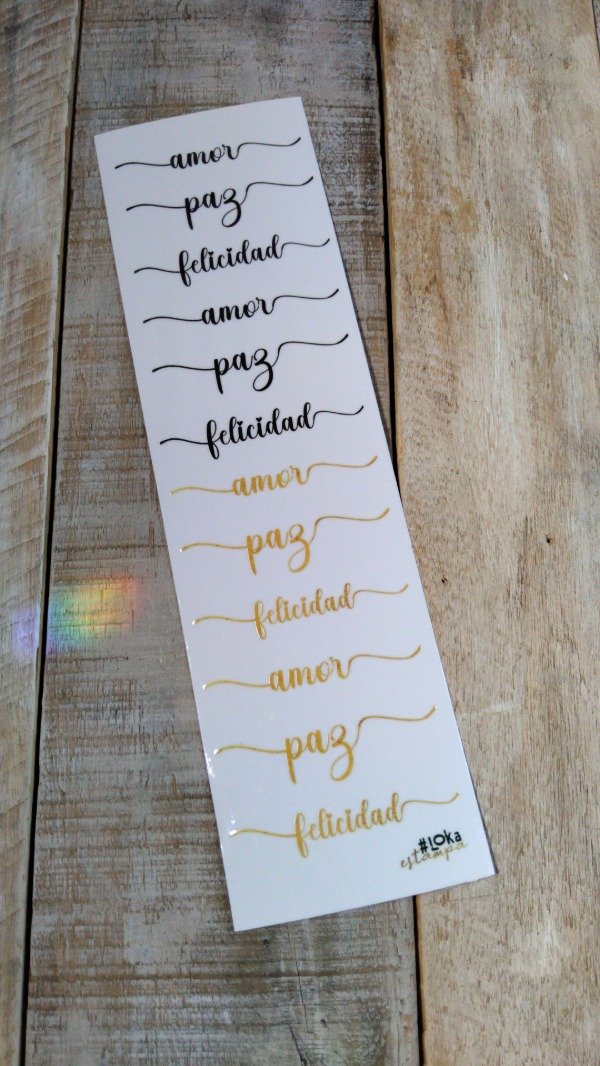 amor
paz
felicidad
amor
paz
felicidad
amor
paz
felicidad
amor
paz
felicidad
#LOKa
estampa